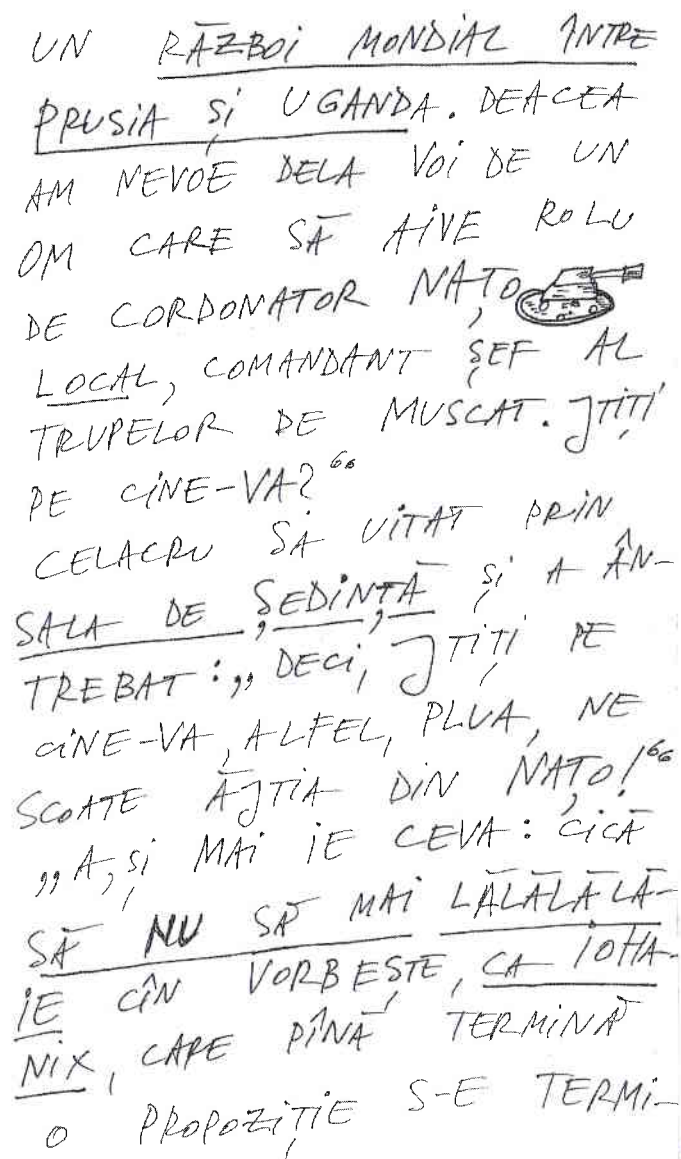 UN RĂZBOI MONDIAL ÎNTRE
PRUSIA ȘI UGANDA. DEACEA
AM NEVOE DELA VOI DE UN
OM CARE SĂ AIVE ROLU
DE CORDONATOR NAȚO
LOCAL, COMANDANT ȘEF AL
TRUPELOR DE MUSCAT. JTIȚI
PE CINE-VA?"
CELACRU SA UITAT PRIN
SALA DE ȘEDINȚĂ ȘI A ÂN-
TREBAT: „DECI, JTIȚI PE
CINE-VA, ALFEL, PLUA, NE
SCOATE ĂJTIA DIN NAȚO!"
„A, ȘI MAI IE CEVA: CICĂ
SĂ NU SĂ MAI LĂLĂLĂLĂ-
IE CÎN VORBEȘTE, CA IOHA-
NIX, CARE PÎNĂ TERMINĂ
O PROPOZIȚIE S-E TERMI-